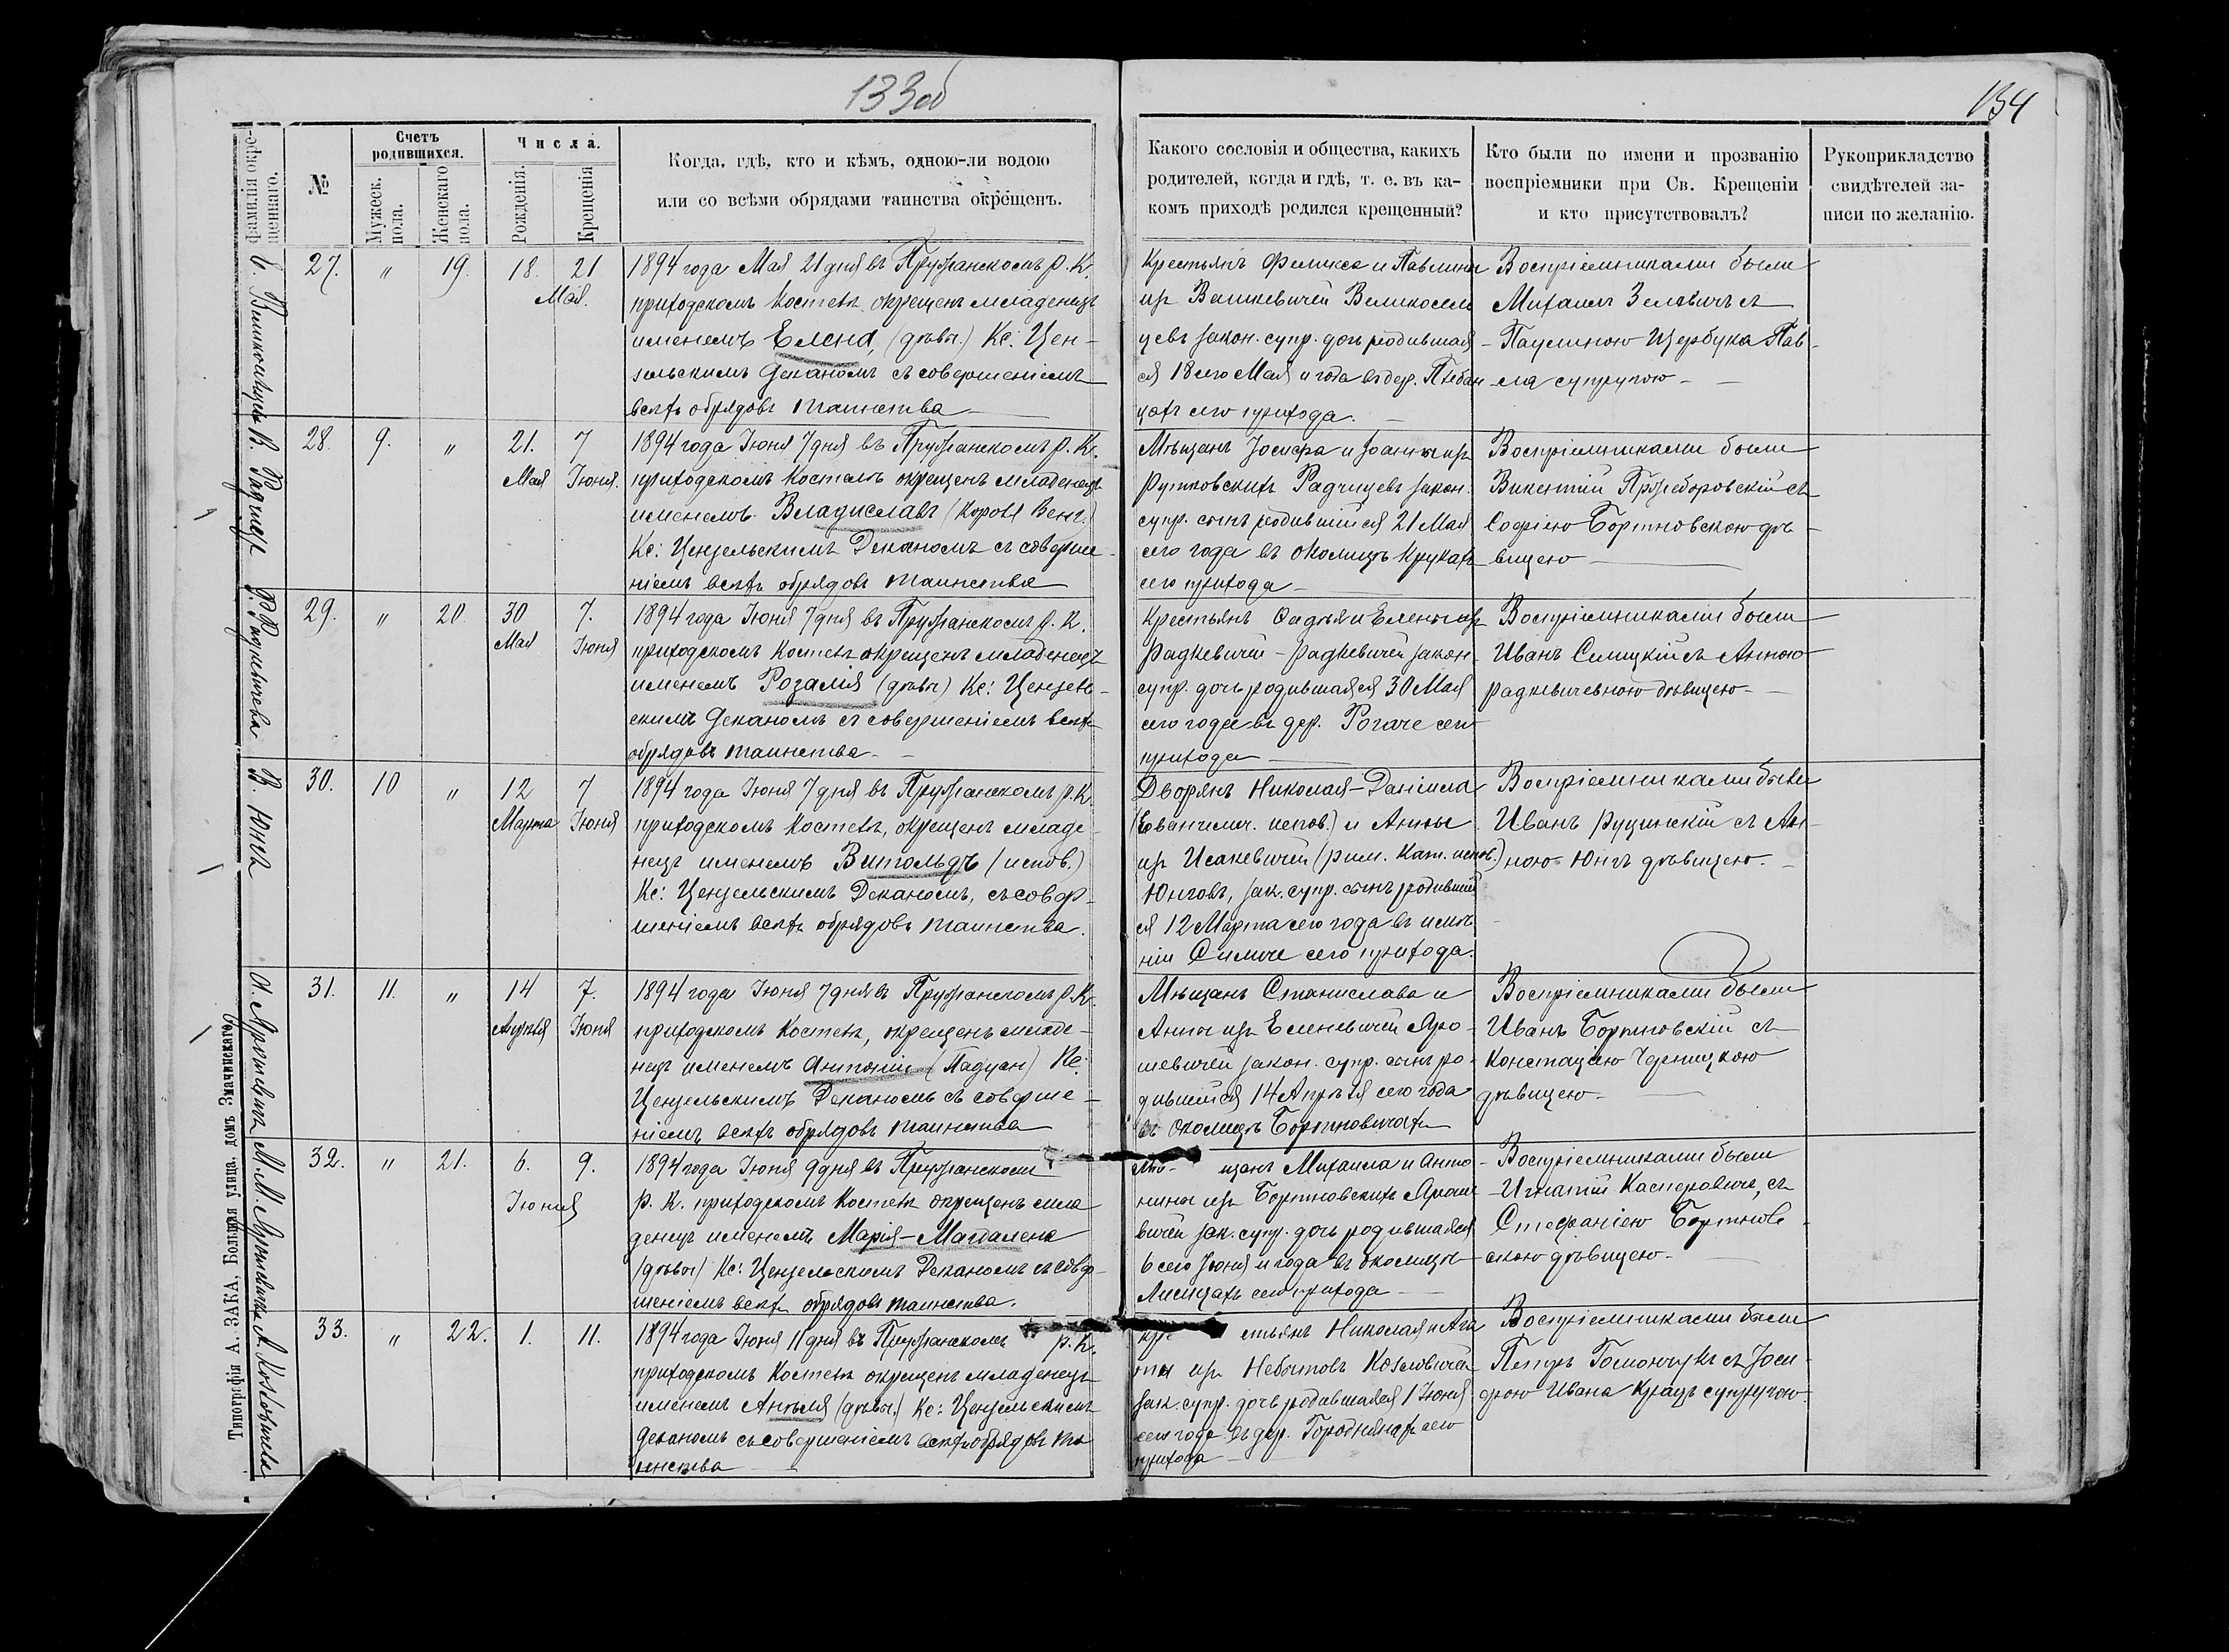 133об
134
Фамилія окре-
щеннаго.
№
Счетъ
родившихся.
Мужеск.
пола.
Женскаго
пола.
Числа.
Рожденія.
Крещенія
Когда, гдѣ, кто и кѣмъ, одною-ли водою
или со всѣми обрядами таинства окрещенъ.
Какого сословія и общества, какихъ
родителей, когда и гдѣ, т. е. въ ка-
комъ приходѣ родился крещенный?
Кто были по имени и прозванію
воспріемники при Св. Крещеніи
и кто присутствовалъ?
Рукоприкладство
свидѣтелей за-
писи по желанію.
27. " 19. 18. 21
Мая.
1894 года Мая 21 дня въ Пружанскомъ Р. К.
приходскомъ Костелѣ окрещенъ младенецъ
именемъ Елена, (дѣвы.) Кс: Цен-
зельскимъ Деканомъ съ совершеніемъ
всѣхъ обрядовъ таинства
Крестьянъ Феликса и Павлины
изъ Вашкевичей Великосель
цевъ закон. супр. дочь родившая
ся 18 сего Мая и года въ дер. Плебан
цахъ сего прихода.
Воспріемниками были
Михаилъ Зеловичъ съ
Паулиною Щербука Пав-
ла супругою
В. Радчицъ
28. 9. " 21. 7
Мая Іюня.
1894 года Іюня 7 дня въ Пружанскомъ р. К.
приходскомъ Костелѣ окрещенъ младенецъ
именемъ Владиславъ (Короля Венг.)
Кс: Цензельскимъ Деканомъ съ соверше-
ніемъ всѣхъ обрядовъ таинства
Мѣщанъ Іосифа и Іоанны изъ
Рутковскихъ Радчицевъ закон.
супр. сынъ родившійся 21 Мая
сего года въ околицѣ Крукахъ
сего прихода
Воспріемниками были
Викентій Пржеборовскій съ
Софіею Бортновскою дѣ-
вицею
Р. Радкевичева
29. " 20. 30 7.
Мая Іюня
1894 года Іюня 7 дня въ Пружанскомъ р. К.
приходскомъ Костелѣ окрещенъ младенецъ
именемъ Розалія (дѣвы) Кс: Цензель-
скимъ Деканомъ съ совершеніемъ всѣхъ
обрядовъ таинства
Крестьянъ Фадѣя и Елены изъ
Радкевичей - Радкевичей закон.
супр. дочь родившаяся 30 Мая
сего года въ дер. Рогаче сего
прихода
Воспріемниками были
Иванъ Селицкій съ Анною
Радкевичевною дѣвицею
В. Юнгъ
30. 10 " 12 7
Марта Іюня
1894 года Іюня 7 дня въ Пружанскомъ р. К.
приходскомъ Костелѣ, окрещенъ младе-
нецъ именемъ Витольдъ (испов.)
Кс: Цензельскимъ Деканомъ, съ совер-
шеніемъ всѣхъ обрядовъ таинства.
Дворянъ Николая-Даніила
(Евангелич. испов.) и Анны
изъ Исакевичей (рим. кат. испов.)
Юнговъ, зак. супр. сынъ родившій
ся 12 Марта сего года въ имѣ-
ніи Силиче сего прихода.
Воспріемниками были
Иванъ Руцинскій съ Ан-
ною Юнгъ дѣвицею.
А. Ярошевичъ
31. 11. " 14 7.
Апрѣля Іюня
1894 года Іюня 7 дня въ Пружанскомъ р. К.
приходскомъ Костелѣ, окрещенъ младе-
нецъ именемъ Антоній (Падуан) Кс:
Цензельскимъ Деканомъ съ соверше-
ніемъ всѣхъ обрядовъ таинства
Мѣщанъ Станислава и
Анны изъ Еленевичей Яро-
шевичей закон. супр. сынъ ро-
дившійся 14 Апрѣля сего года
въ околицѣ Бортновичахъ
Воспріемниками были
Иванъ Бортновскій съ
Констаціею Черницкою
дѣвицею
32. " 21. 6. 9.
Іюня
1894 года Іюня 9 дня въ Пружанскомъ
р. К. приходскомъ Костелѣ окрещенъ мла
денецъ именемъ Марія-Магдалена
(дѣвы) Кс: Цензельскимъ Деканомъ съ совер-
шеніемъ всѣхъ обрядовъ таинства.
Мѣ- щанъ Михаила и Анто
нины изъ Бортновскихъ Яроше
вичей зак. супр. дочь родившаяся
6 сего Іюня и года въ околицѣ
Лисицахъ сего прихода
Воспріемниками были
Игнатій Касперовичъ, съ
Стефаніею Бортнов-
скою дѣвицею
33. " 22. 1. 11.
1894 года Іюня 11 дня въ Пружанскомъ р. К.
приходскомъ Костелѣ окрещенъ младенецъ
именемъ Ангеля (дѣвы.) Кс: Цензельскимъ
Деканомъ съ совершеніемъ всѣхъ обрядовъ та
инства
Кре стьянъ Николая и Ага
ты изъ Небытовъ Козловичей
зак. супр. дочь родившаяся 1 Іюня
сего года въ дер. Городнянахъ сего
прихода
Воспріемниками были
Петръ Гомончукъ съ Іози-
фою Ивана Крацъ супругою
Типографія А. ЗАКА, Большая улица, домъ Значинскаго.